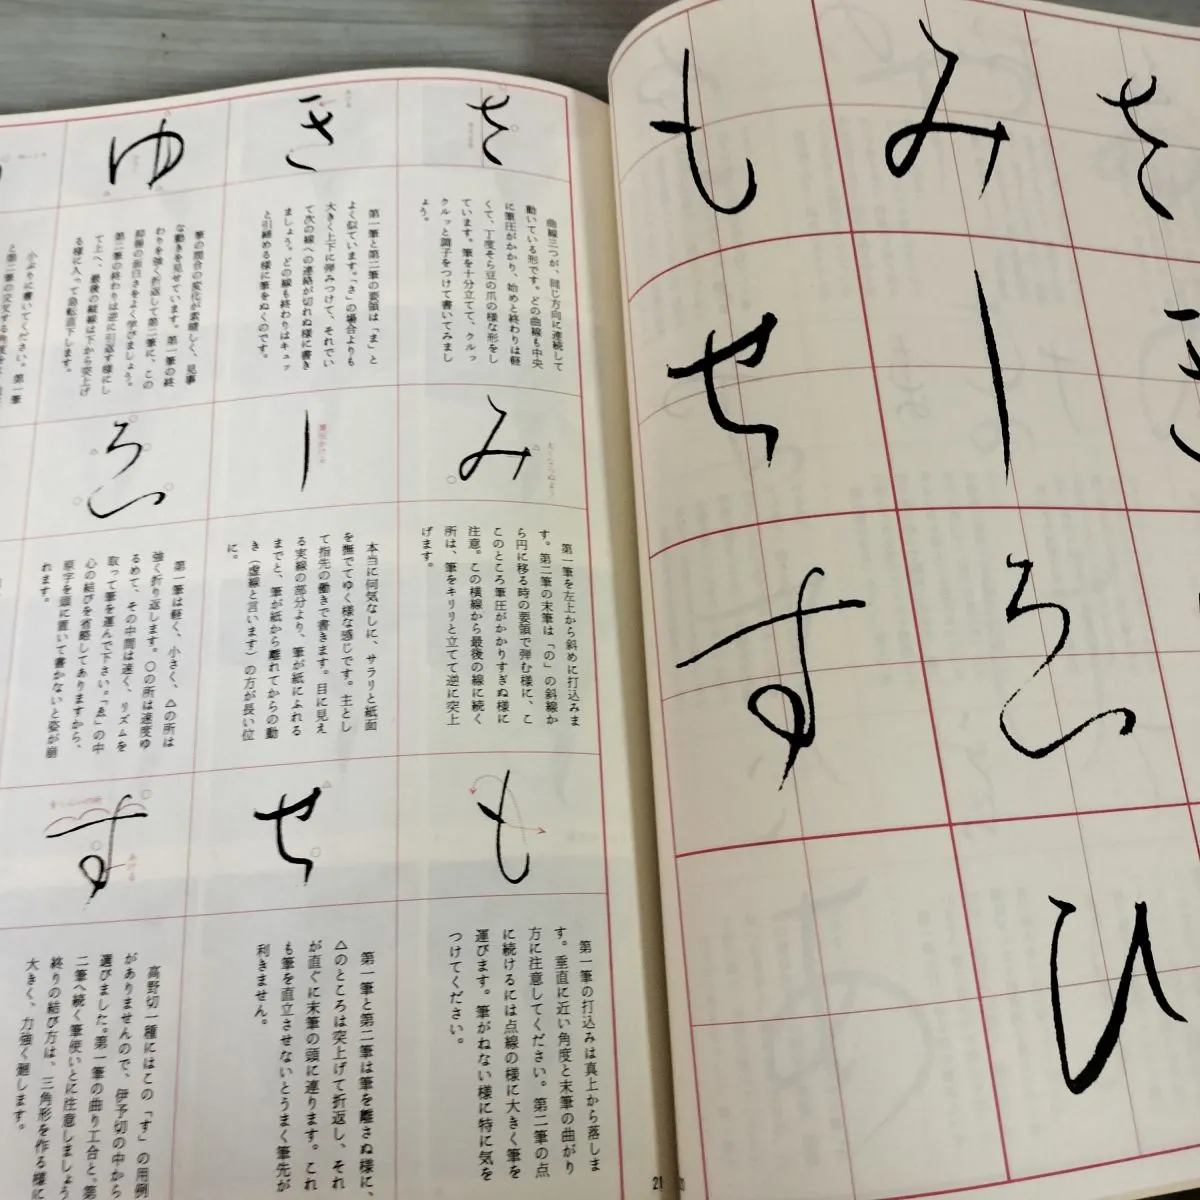 さ
き
み
し
ゑ
ひ
も
せ
す
さ
曲線三つが、同じ方向に連続して
動いている形です。どの曲線も中央
に筆圧がかかり、始めと終わりは軽
くて、丁度そら豆の爪の様な形をし
ています。筆を十分立てて、クルッ
クルッと調子をつけて書いてみまし
ょう。
き
第一筆と第二筆の要領は「ま」と
よく似ています。「さ」の場合よりも
大きく上下に弾みつけて、それでい
て次の線への連絡が切れぬ様に書き
ましょう。どの線も終わりはキュッ
と引締める様に筆をぬくのです。
ゆ
筆の間合の変化が素晴しく、見事
な動きを見せています。第一筆の終
わりを強く折返して第二筆に、この
抑揚の面白さをよく学びましょう。
第二筆の終わりは逆に引返す様にし
て上へ、最後の縦線は下から突上げ
る様に入って急転直下します。
小ぶりに書いてください。第一筆
と第二筆の交叉する角度を
み
大きくうつぬよう
第一筆を左上から斜めに打込みま
す。第二筆の末筆は「の」の斜線か
ら円に移る時の要領で弾む様に、こ
このところ筆圧がかかりすぎぬ様に
注意。この横線から最後の線に続く
所は、筆をキリリと立てて逆に突上
げます。
し
本当に何気なしに、サラリと紙面
を撫でてゆく様な感じです。主とし
て指先の働きで書きます。目に見え
る実線の部分より、筆が紙にふれる
までと、筆が紙から離れてからの動
き（虚線と言います）の方が長い位
に。
ゑ
第一筆は軽く、小さく、△の所は
強く折り返します。○の所は速度ゆ
るめて、その中間は速く、リズムを
取って筆を運んで下さい。「ゑ」の中
心の結びを省略してありますから、
原字を頭に置いて書かないと姿が崩
れます。
も
第一筆の打込みは真上から落しま
す。垂直に近い角度と末筆の曲がり
方に注意してください。第二筆の点
に続けるには点線の様に大きく筆を
運びます。筆がねない様に特に気を
つけてください。
せ
第一筆と第二筆は筆を離さぬ様に、
△のところは突上げて折返し、それ
が直ぐに末筆の頭に連ります。これ
も筆を直立させないとうまく筆先が
利きません。
す
あける
高野切一種にはこの「す」の用例
がありませんので、伊予切の中から
選びました。第一筆の曲り工合と、第
二筆へ続く筆使いとに注意しましょう
終りの結び方は、三角形を作る様に
大きく、力強く廻します。
21